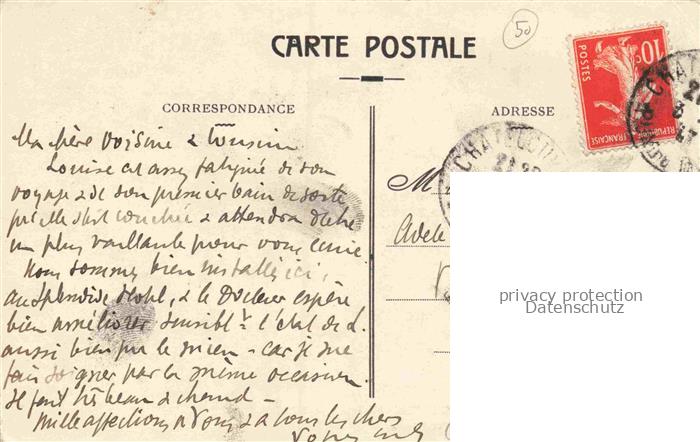 50
CARTE POSTALE
10c
POSTES
REPUBLIQUE FRANÇAISE
CORRESPONDANCE
ADRESSE
Ma chère Voisine & Cousine
Louise est assez fatiguée de son
voyage & de son premier bain de sorte
qu'elle s'est couchée & attendra d'être
un plus vaillante pour vous écrire
Nous sommes bien installés ici,
au Splendide Hotel, & le Docteur espère
bien améliorer sensiblt l'état de L.
aussi bien que le mien - car je me
fais soigner par la même occasion.
Il fait très beau & chaud -
Mille affections à vous & à tous les chers
CHATELGUY
M
Adele
privacy protection
Datenschutz